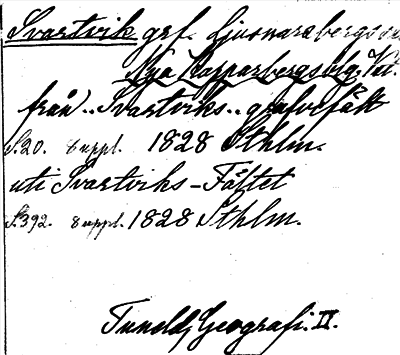 Svartvik grf. Ljusnarsbergs sn
Nya Kopparbergs bg. Vml.
från "Svartviks" grufvefält
S.20. 8 uppl. 1828 Sthlm.
uti Svartviks-Fältet
S.392. 8 uppl. 1828 Sthlm.
Tuneld, Geografi. II.